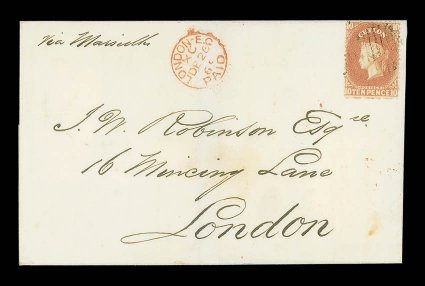 Via Marseilles
LONDON E.C.
PAID
CEYLON
10 TEN PENCE 10
J. W. Robinson Esqre
16 Mincing Lane
London